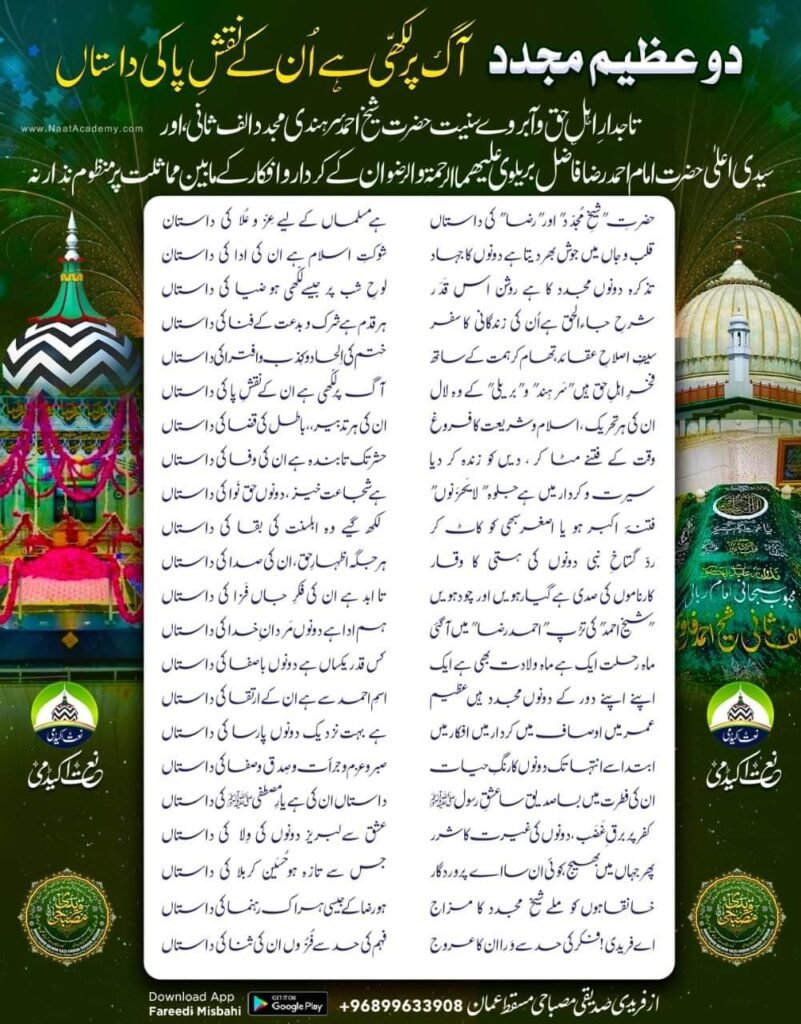 دو عظیم مجدد آگ پر لکھی ہے اُن کے نقشِ پا کی داستاں
www.NaatAcademy.com
تاجدارِ اہلِ حق و آبروے سنیت حضرت شیخ احمد سرہندی مجدد الف ثانی، اور
سیدی اعلیٰ حضرت امام احمد رضا فاضل بریلوی علیھما الرحمۃ والرضوان کے کردار و افکار کے مابین مماثلت پر منظوم نذرانہ
حضرتِ "شیخِ مُجَدّد" اور "رضا" کی داستاں ہے مسلماں کے لیے عزّ و عُلا کی داستاں
قلب و جاں میں جوش بھر دیتا ہے دونوں کا جہاد شوکتِ اسلام ہے ان کی ادا کی داستاں
تذکرہ دونوں مجدد کا ہے روشن اس قدَر لوحِ شب پر جیسے لکھی ہو ضیا کی داستاں
شرحِ جاءالحق ہے اُن کی زندگانی کا سفر ہر قدم ہے شرک و بدعت کے فنا کی داستاں
سیفِ اصلاحِ عقائد، تھام کر ہمت کے ساتھ ختم کی الحاد و کذب و افترا کی داستاں
فخرِ اہلِ حق ہیں "سَرہِند" و "بریلی" کے وہ لال آگ پر لکھی ہے ان کے نقشِ پا کی داستاں
ان کی ہر تحریک، اسلام و شریعت کا فروغ ان کی ہر تدبیر،، باطل کی قضا کی داستاں
وقت کے فتنے مٹا کر، دیں کو زندہ کر دیا حشر تک تابندہ ہے ان کی وفا کی داستاں
سیرت و کردار میں ہے جلوہ "لا یحزنوں" ہے شجاعت خیز، دونوں حق نوا کی داستاں
فتنۂ اکبر ہو یا اصغر سبھی کو کاٹ کر لکھ گیے وہ اہلسنت کی بقا کی داستاں
ردِّ گستاخِ نبی دونوں کی ہستی کا وقار ہر جگہ اظہارِ حق، ان کی صدا کی داستاں
کارناموں کی صدی ہے گیارہویں اور چودہویں تا ابد ہے ان کی فکرِ جاں فَزا کی داستاں
"شیخ احمد" کی تڑپ "احمد رضا" میں آگئی ہم ادا ہے دونوں مَردانِ خدا کی داستاں
ماہ رحلت ایک ہے ماہ ولادت بھی ہے ایک کس قدر یکساں ہے دونوں باصفا کی داستاں
اپنے اپنے دور کے دونوں مجدد ہیں عظیم اسمِ احمد سے ہے ان کے ارتقا کی داستاں
عمر میں اوصاف میں کردار میں افکار میں ہے بہت نزدیک دونوں پارسا کی داستاں
ابتدا سے انتہا تک دونوں کا رنگِ حیات صبر و عزم و جرأت و صِدق و صفا کی داستاں
ان کی فطرت میں بسا صدیق سا عشقِ رسول ﷺ داستاں ان کی ہے یارِ مصطفیٰ ﷺ کی داستاں
کفر پر برقِ غَضَب، دونوں کی غیرت کا شرر عشق سے لبریز دونوں کی وِلا کی داستاں
پھر جہاں میں بھیج، کوئی ان سا اے پروردگار جس سے تازہ ہو حُسَینِ کربلا کی داستاں
خانقاہوں کو ملے شیخ مجدد کا مزاج ہو رضا کے جیسی ہر اک رہنما کی داستاں
اے فریدی! فکر کی حد سے وَرا ان کا عروج فہم کی حد سے فُزوں ان کی ثنا کی داستاں
نعت اکیڈمی
نعت اکیڈمی
نعت اکیڈمی
نعت اکیڈمی
Download App
Fareedi Misbahi
GET IT ON
Google Play
+96899633908
از فریدی صدیقی مصباحی مسقط عمان